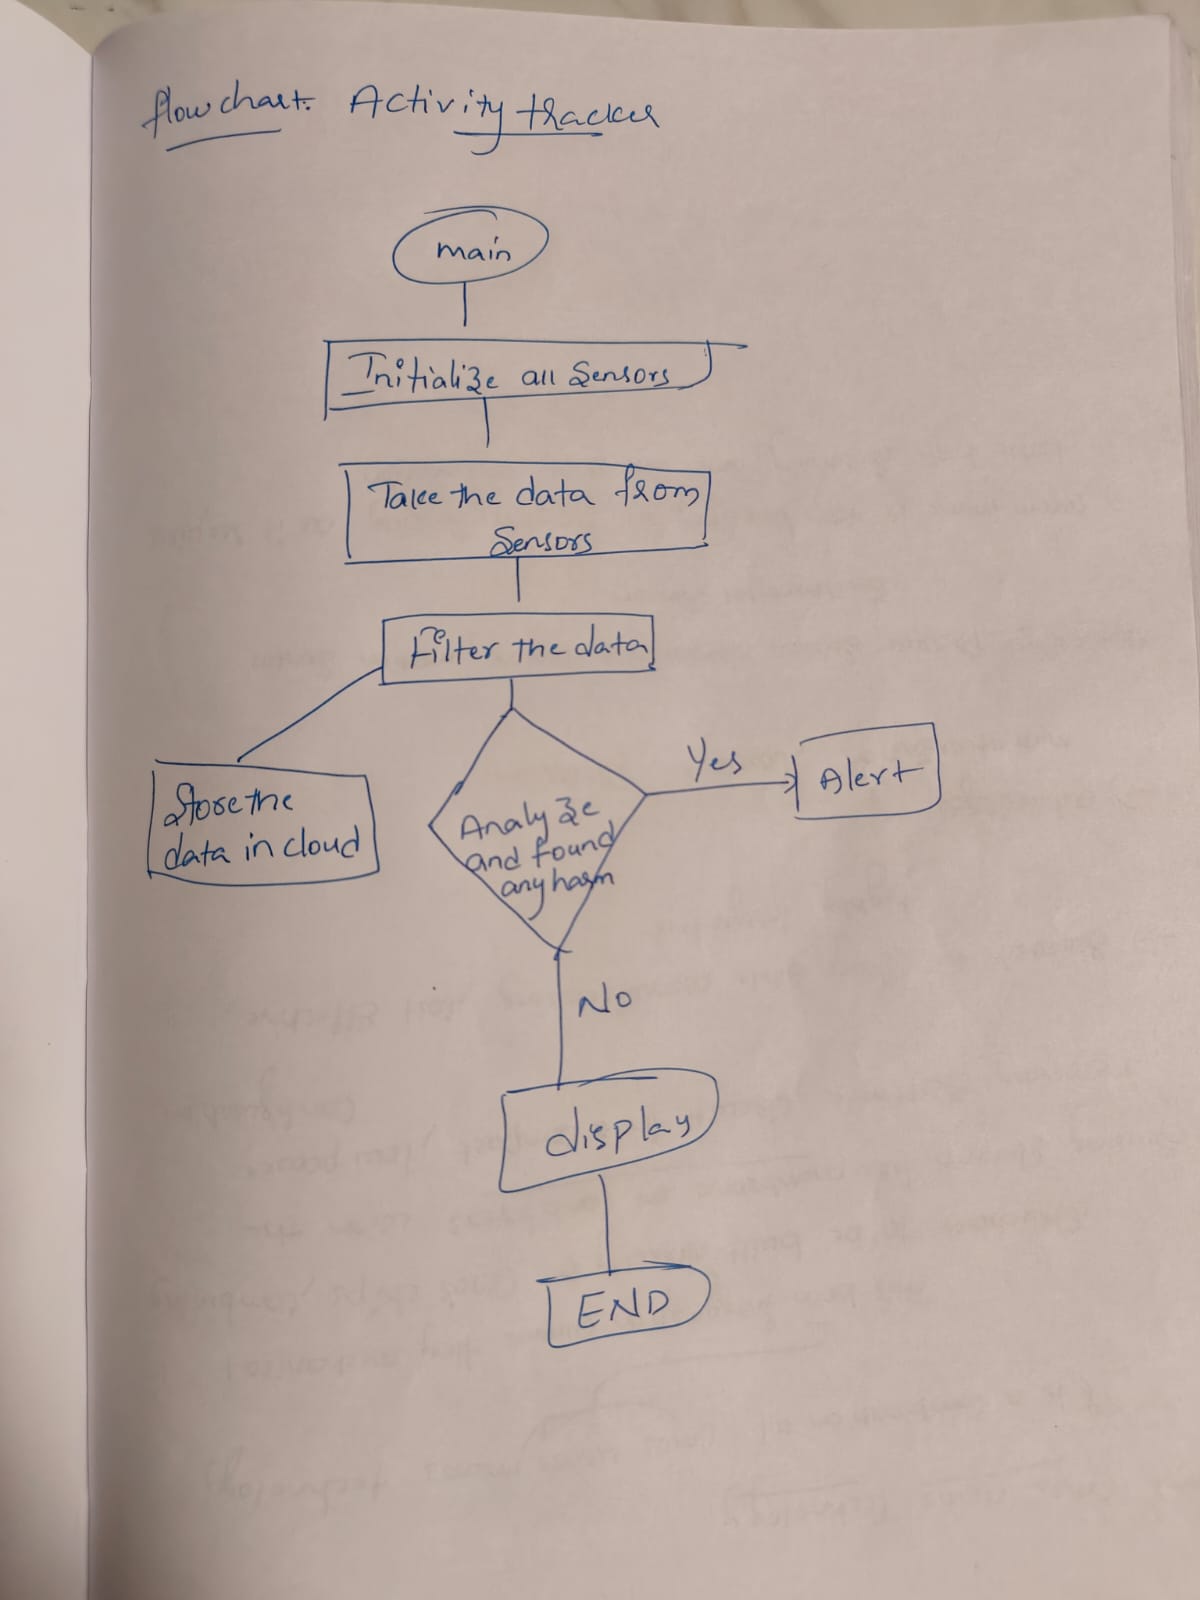 flow chart: Activity tracker
main
Initialize all Sensors
Take the data from
Sensors
Filter the data
Store the
data in cloud
Analyze
and found
any harm
Yes
Alert
No
display
END